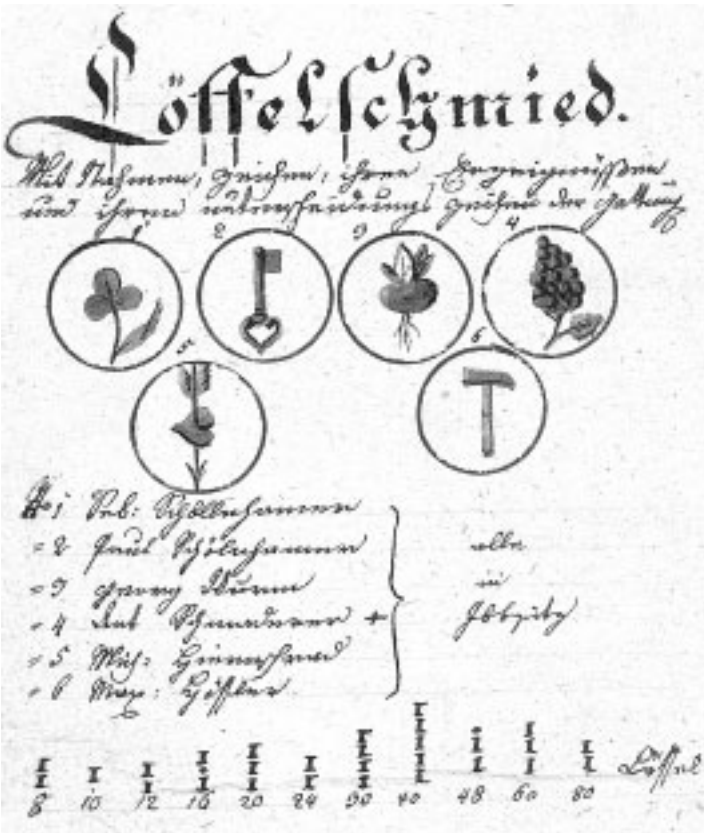 Löffelschmied.
Mit Nahmen, zeichen, ihren Erzeignüßen
und ihrem unterscheidungs zeichen der Gattung
1 2 3 4
5 6
No 1 Seb: Schölnhamer
= 2 Paul Schölnhamer
= 3 georg Wurm
= 4 Ant Schmaderer +
= 5 Mich:
= 6 Max: Höfler
alle
in
Ibbsitz
8 10 12 16 20 24 30 40 48 60 80 Löffel